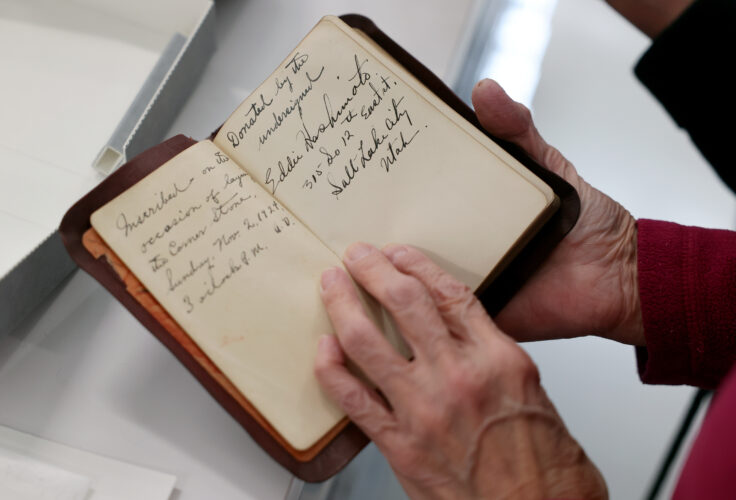 Inscribed on the
occasion of laying
the Corner Stone.
Sunday, Nov. 2, 1924.
3 o'clock P.M.
Donated by the
undersigned
Eddie Hashimoto,
315 So 12th East st.
Salt Lake City
Utah.